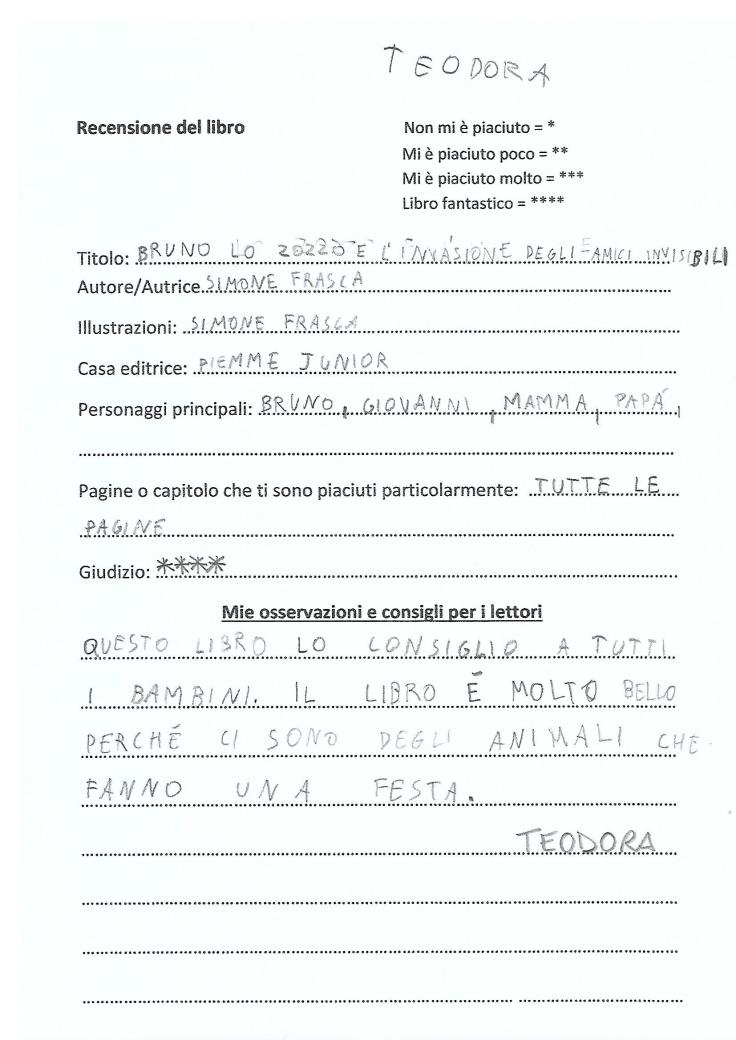 TEODORA
Recensione del libro
Non mi è piaciuto = *
Mi è piaciuto poco = **
Mi è piaciuto molto = ***
Libro fantastico = ****
Titolo: BRUNO LO ZOZZO E L'INVASIONE DEGLI AMICI INVISIBILI
Autore/Autrice SIMONE FRASCA
Illustrazioni: SIMONE FRASCA
Casa editrice: PIEMME JUNIOR
Personaggi principali: BRUNO, GIOVANNI, MAMMA, PAPÀ,
Pagine o capitolo che ti sono piaciuti particolarmente: TUTTE LE
PAGINE
Giudizio: ****
Mie osservazioni e consigli per i lettori
QUESTO LIBRO LO CONSIGLIO A TUTTI
I BAMBINI. IL LIBRO È MOLTO BELLO
PERCHÉ CI SONO DEGLI ANIMALI CHE
FANNO UNA FESTA.
TEODORA